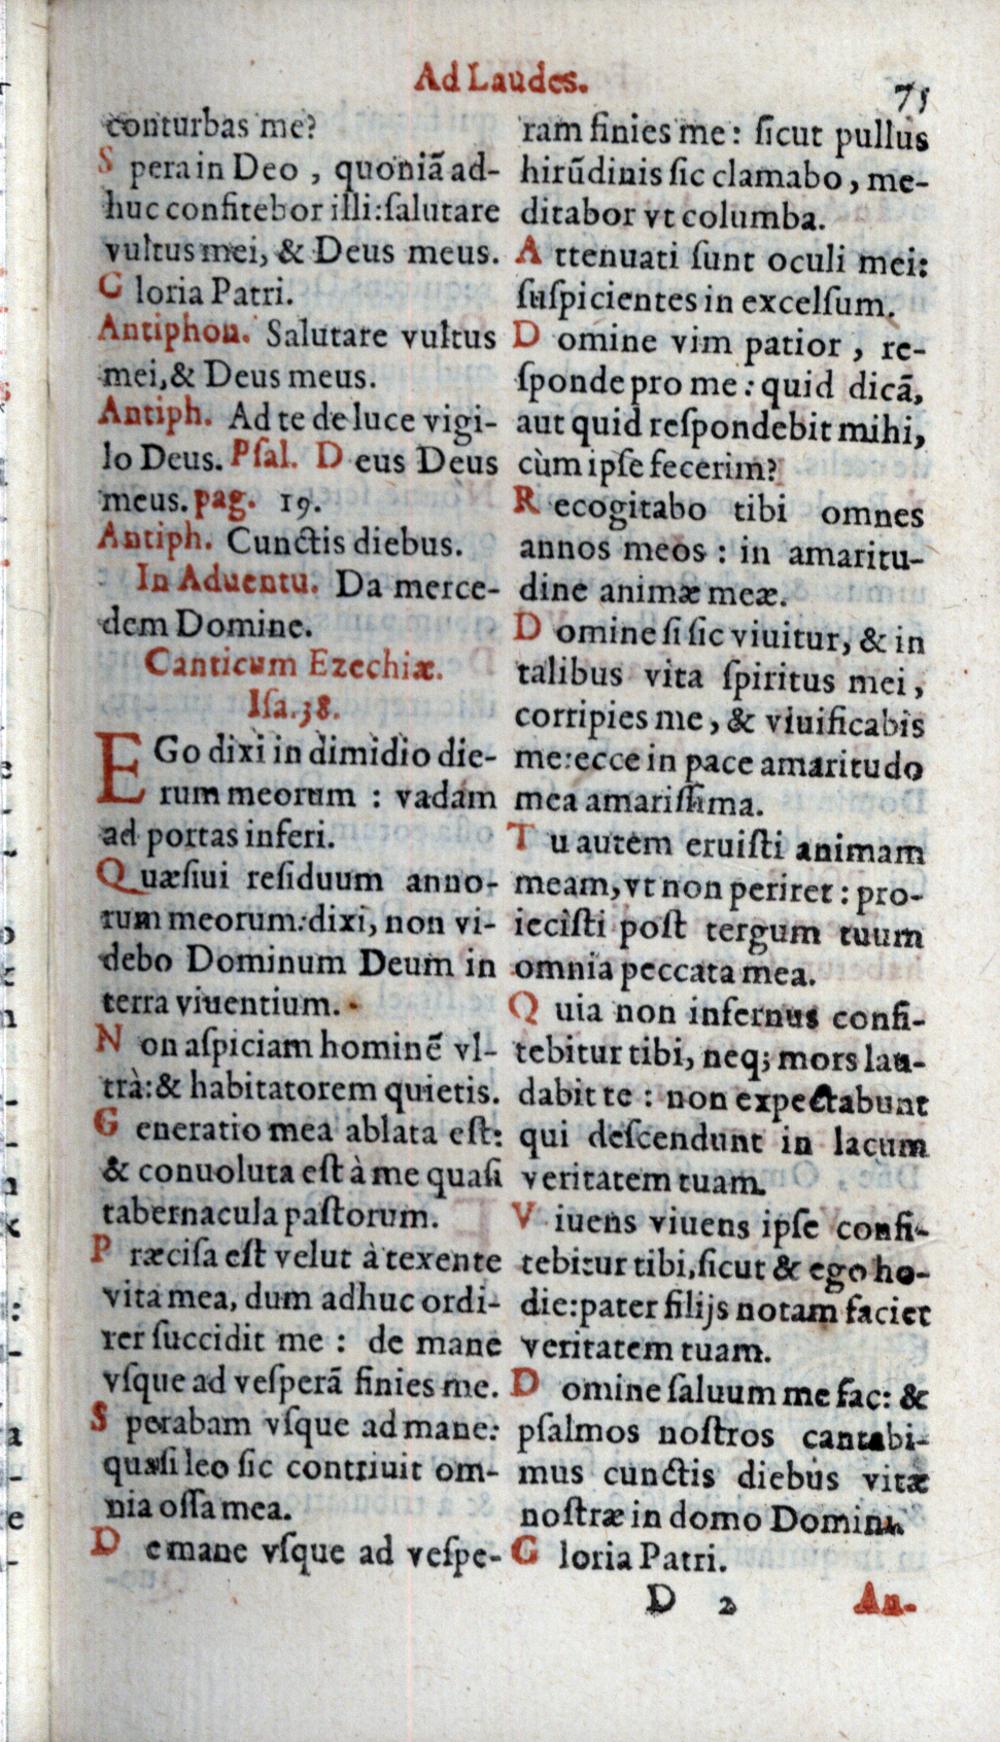 Ad Laudes.
75
conturbas me?
S pera in Deo , quoniã ad-
huc confitebor illi: ſalutare
vultus mei, & Deus meus.
G loria Patri.
Antiphon. Salutare vultus
mei, & Deus meus.
Antiph. Ad te de luce vigi-
lo Deus. Pſal. D eus Deus
meus. pag. 19.
Antiph. Cunctis diebus.
In Aduentu. Da merce-
dem Domine.
Canticum Ezechiæ.
Iſa. 38.
EGo dixi in dimidio die-
rum meorum : vadam
ad portas inferi.
Quæſiui reſiduum anno-
rum meorum: dixi, non vi-
debo Dominum Deum in
terra viuentium.
N on aſpiciam hominẽ vl-
trà: & habitatorem quietis.
G eneratio mea ablata eſt:
& conuoluta eſt à me quaſi
tabernacula paſtorum.
P ræciſa eſt velut à texente
vita mea, dum adhuc ordi-
rer ſuccidit me : de mane
vſque ad veſperã finies me.
S perabam vſque ad mane:
quaſi leo ſic contriuit om-
nia oſſa mea.
D e mane vſque ad veſpe-
ram finies me : ſicut pullus
hirũdinis ſic clamabo, me-
ditabor vt columba.
A ttenuati ſunt oculi mei:
ſuſpicientes in excelſum.
D omine vim patior , re-
ſponde pro me : quid dicã,
aut quid reſpondebit mihi,
cùm ipſe fecerim?
R ecogitabo tibi omnes
annos meos : in amaritu-
dine animæ meæ.
D omine ſi ſic viuitur, & in
talibus vita ſpiritus mei,
corripies me, & viuificabis
me: ecce in pace amaritudo
mea amariſſima.
T u autem eruiſti animam
meam, vt non periret : pro-
ieciſti poſt tergum tuum
omnia peccata mea.
Q uia non infernus confi-
tebitur tibi, neq; mors lau-
dabit te : non expectabunt
qui deſcendunt in lacum
veritatem tuam.
V iuens viuens ipſe confi-
tebitur tibi, ſicut & ego ho-
die: pater filijs notam faciet
veritatem tuam.
D omine ſaluum me fac: &
pſalmos noſtros cantabi-
mus cunctis diebus vitæ
noſtræ in domo Domini.
G loria Patri.
D 2
An-